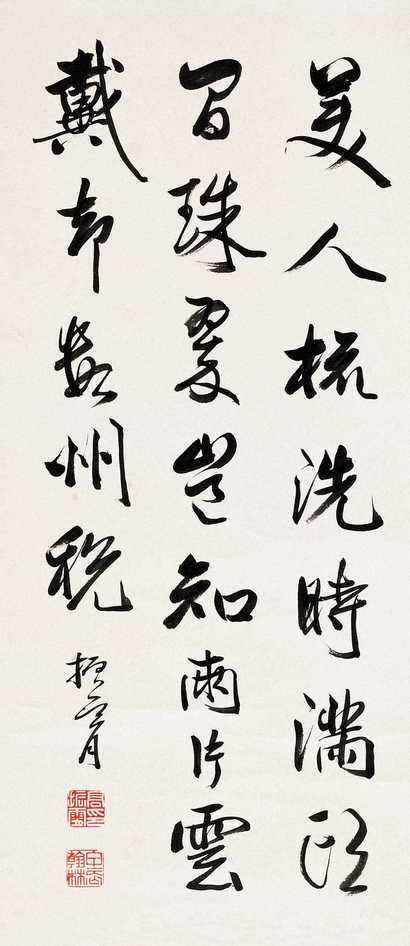 美人梳洗時滿頭
間珠翠豈知兩片雲
戴却數州稅
振霄